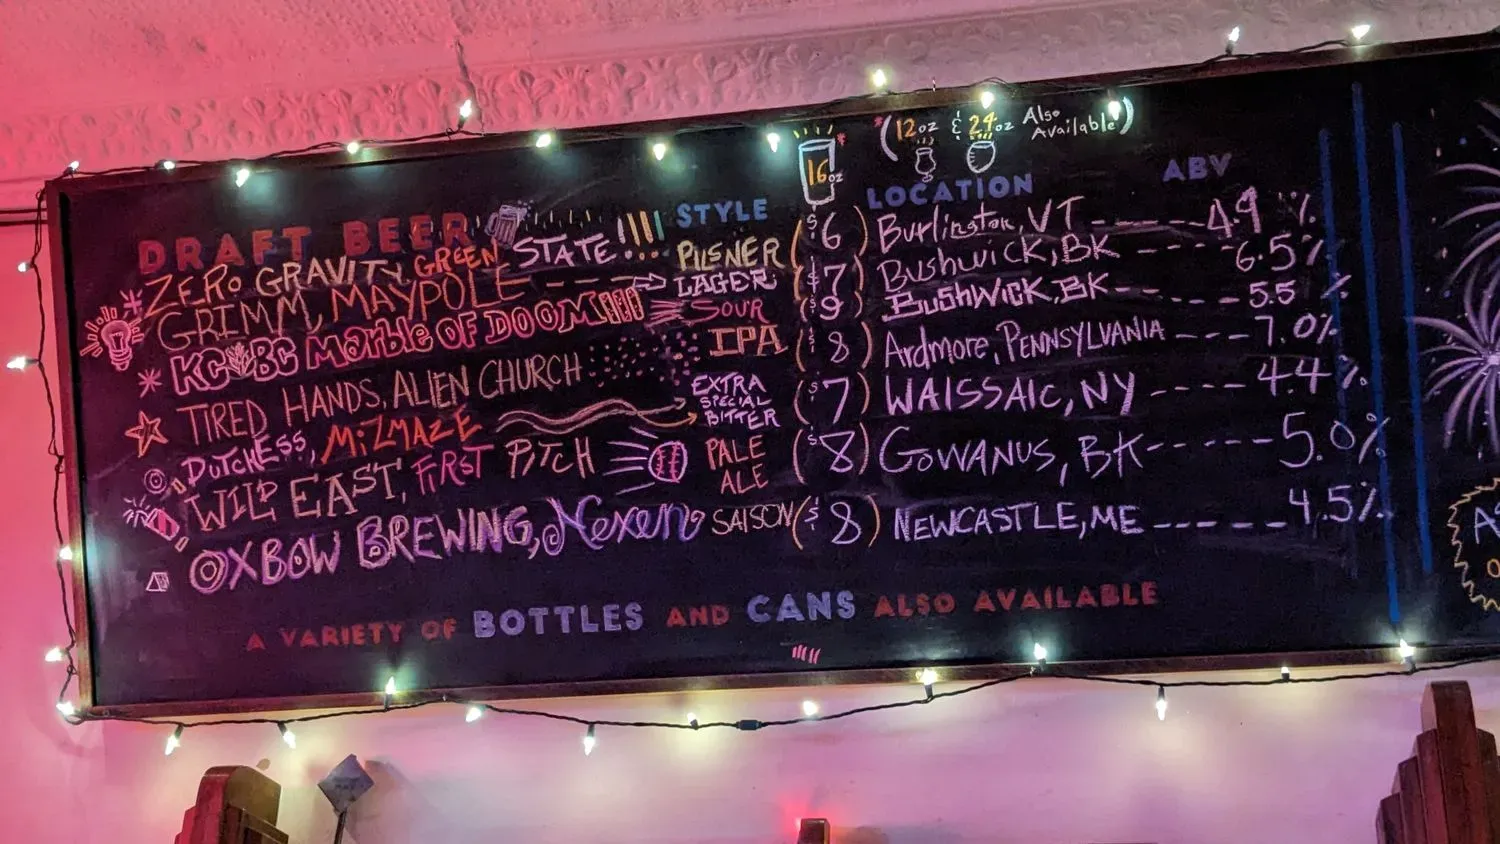 16oz *(12oz & 24oz Also Available)
DRAFT BEER STYLE LOCATION ABV
ZERO GRAVITY, GREEN STATE!!!! PILSNER ($6) Burlington, VT ------ 4.9%
GRIMM, MAYPOLE --- LAGER ($7) Bushwick, BK ------ 6.5%
KCBC Marble OF DOOM!!!! SOUR ($9) BUSHWICK, BK ------ 5.5%
TIRED HANDS, ALIEN CHURCH IPA ($8) Ardmore, PENNSYLVANIA --- 7.0%
DUTCHESS, MiZMAZE EXTRA SPECIAL BITTER ($7) WAISSAIC, NY ---- 4.4%
WILD EAST, FIRST PITCH PALE ALE ($8) GOWANUS, BK ------ 5.0%
OXBOW BREWING, Nexen SAISON ($8) NEWCASTLE, ME ------ 4.5%
A VARIETY OF BOTTLES AND CANS ALSO AVAILABLE